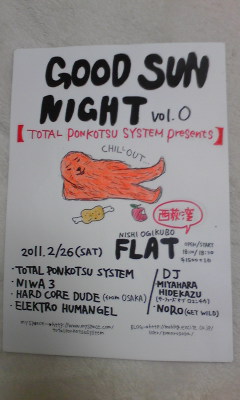 GOOD SUN
NIGHT vol.0
【TOTAL PONKOTSU SYSTEM presents】
CHILL OUT
西荻窪
NISHI OGIKUBO
FLAT
OPEN/START
18:00/18:30
2011.2/26(SAT)
・TOTAL PONKOTSU SYSTEM
・NIWA 3
・HARD CORE DUDE (from OSAKA)
・ELEKTRO HUMANGEL
DJ
MIYAHARA
HIDEKAZU
・NORO (GET WILD)